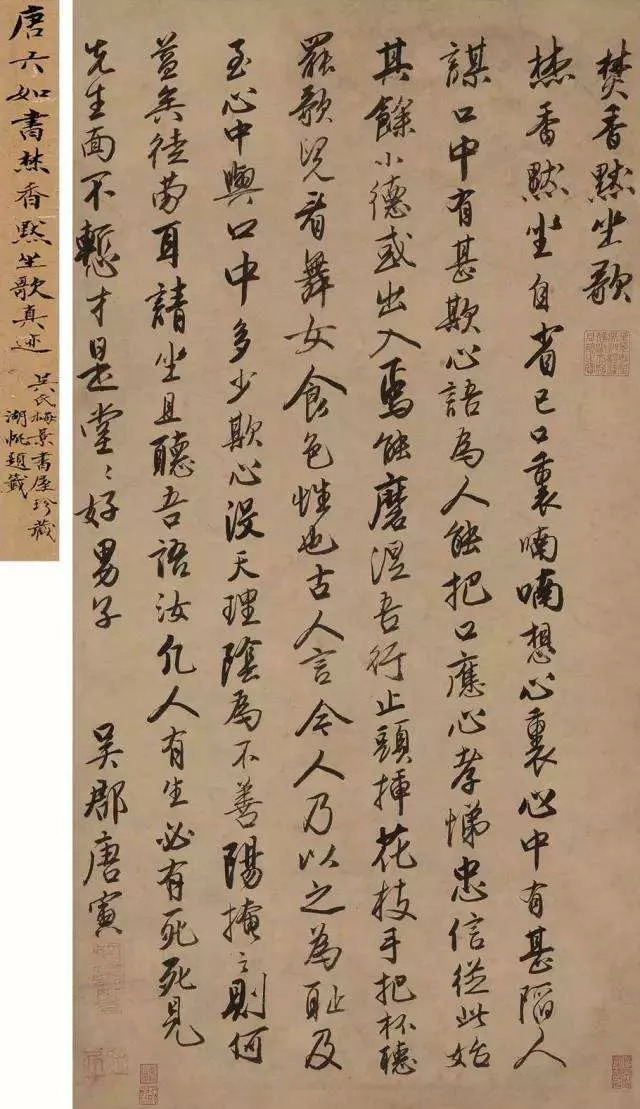 焚香默坐歌
焚香默坐自省已口裏喃喃想心裏心中有甚陷人
謀口中有甚欺心語為人能把口應心孝悌忠信從此始
其餘小德或出入焉能磨涅吾行止頭插花枝手把杯聽
罷歌兒看舞女食色性也古人言今人乃以之為耻及
至心中與口中多少欺心沒天理陰為不善陽掩之則何
益矣徒勞耳請坐且聽吾語汝凡人有生必有死死見
先生面不慙才是堂〻好男子
吳郡唐寅
唐六如書焚香默坐歌真迹
吳氏梅景書屋珍藏
湖帆題籤